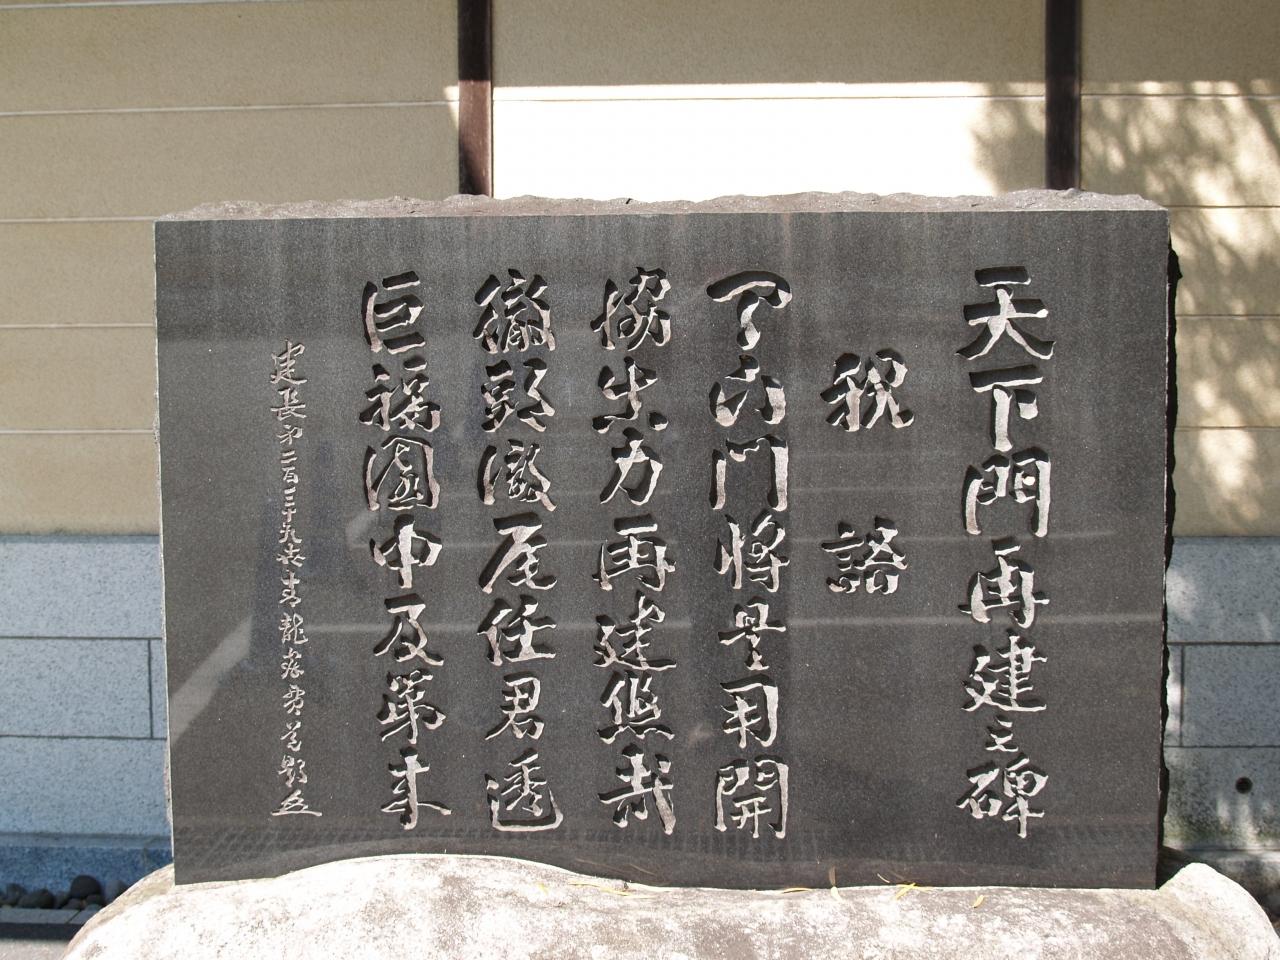 天下門再建之碑
祝語
門将是用開
協出力再建悠哉
徹頭徹尾任君透
巨福園中及第来
建長第二百三十九世青龍窟